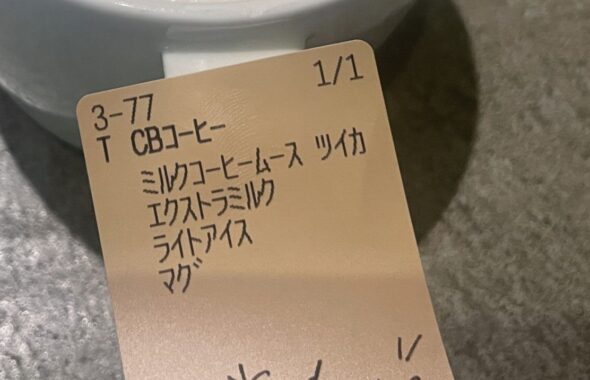 3-77 1/1
T CBコーヒー
ミルクコーヒームース ツイカ
エクストラミルク
ライトアイス
マグ